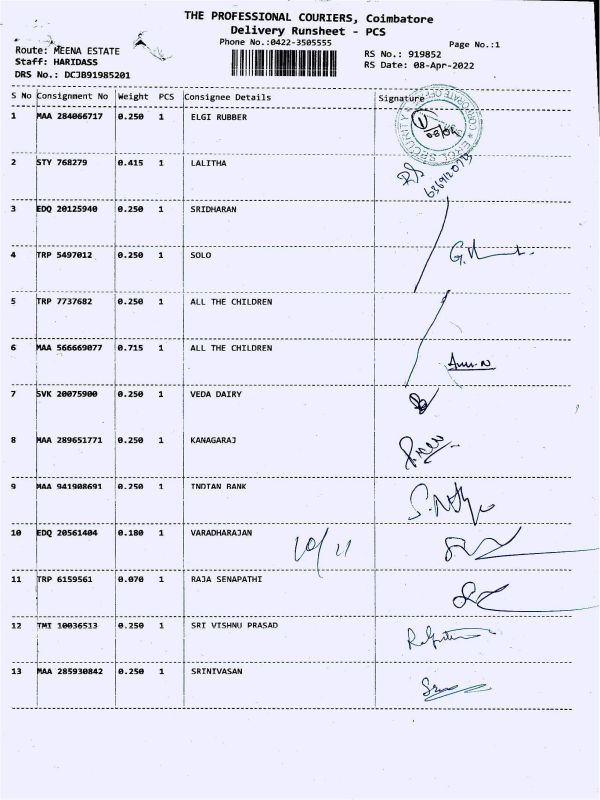 THE PROFESSIONAL COURIERS, Coimbatore
Delivery Runsheet - PCS
Phone No.:0422-3505555
Page No.:1
Route: MEENA ESTATE
RS No.: 919852
Staff: HARIDASS
RS Date: 08-Apr-2022
DRS No.: DCJB91985201
S No Consignment No Weight PCS Consignee Details Signature
1 MAA 284066717 0.250 1 ELGI RUBBER
2 STY 768279 0.415 1 LALITHA
3 EDQ 20125940 0.250 1 SRIDHARAN
4 TRP 5497012 0.250 1 SOLO
5 TRP 7737682 0.250 1 ALL THE CHILDREN
6 MAA 566669077 0.715 1 ALL THE CHILDREN
7 SVK 20075900 0.250 1 VEDA DAIRY
8 MAA 289651771 0.250 1 KANAGARAJ
9 MAA 941908691 0.250 1 INDIAN BANK
10 EDQ 20561404 0.180 1 VARADHARAJAN 10/11
11 TRP 6159561 0.070 1 RAJA SENAPATHI
12 TMI 10036513 0.250 1 SRI VISHNU PRASAD
13 MAA 285930842 0.250 1 SRINIVASAN